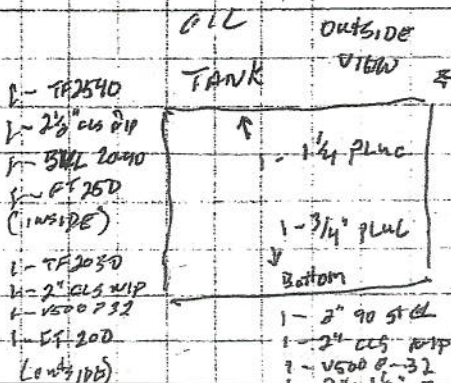 OIL
TANK
OUTSIDE
VIEW
1 - TF2540
1 - 2½" CLS NIP
1 - 2040
1 - FT250
(INSIDE)
1 - TF2030
1 - 2" CLS NIP
1 - V500 P32
1 - FT 200
(OUTSIDE)
1 - 1¼ PLUG
1 - 3/4" PLUG
Bottom
1 - 2" 90 STEL
1 - 2" CLS NIP
1 - V500 P-32